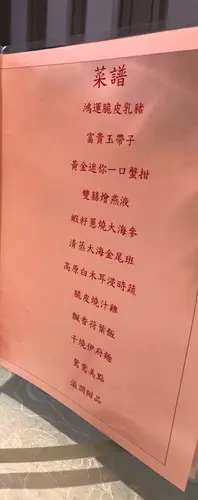 菜譜
鴻運脆皮乳豬
富貴玉帶子
黃金迷你一口蟹拑
雙囍燴燕液
蝦籽蔥燒大海參
清蒸大海金尾班
高原白木耳浸時蔬
脆皮燒汁雞
飄香荷葉飯
干燒伊府麵
鴛鴦美點
滋潤甜品